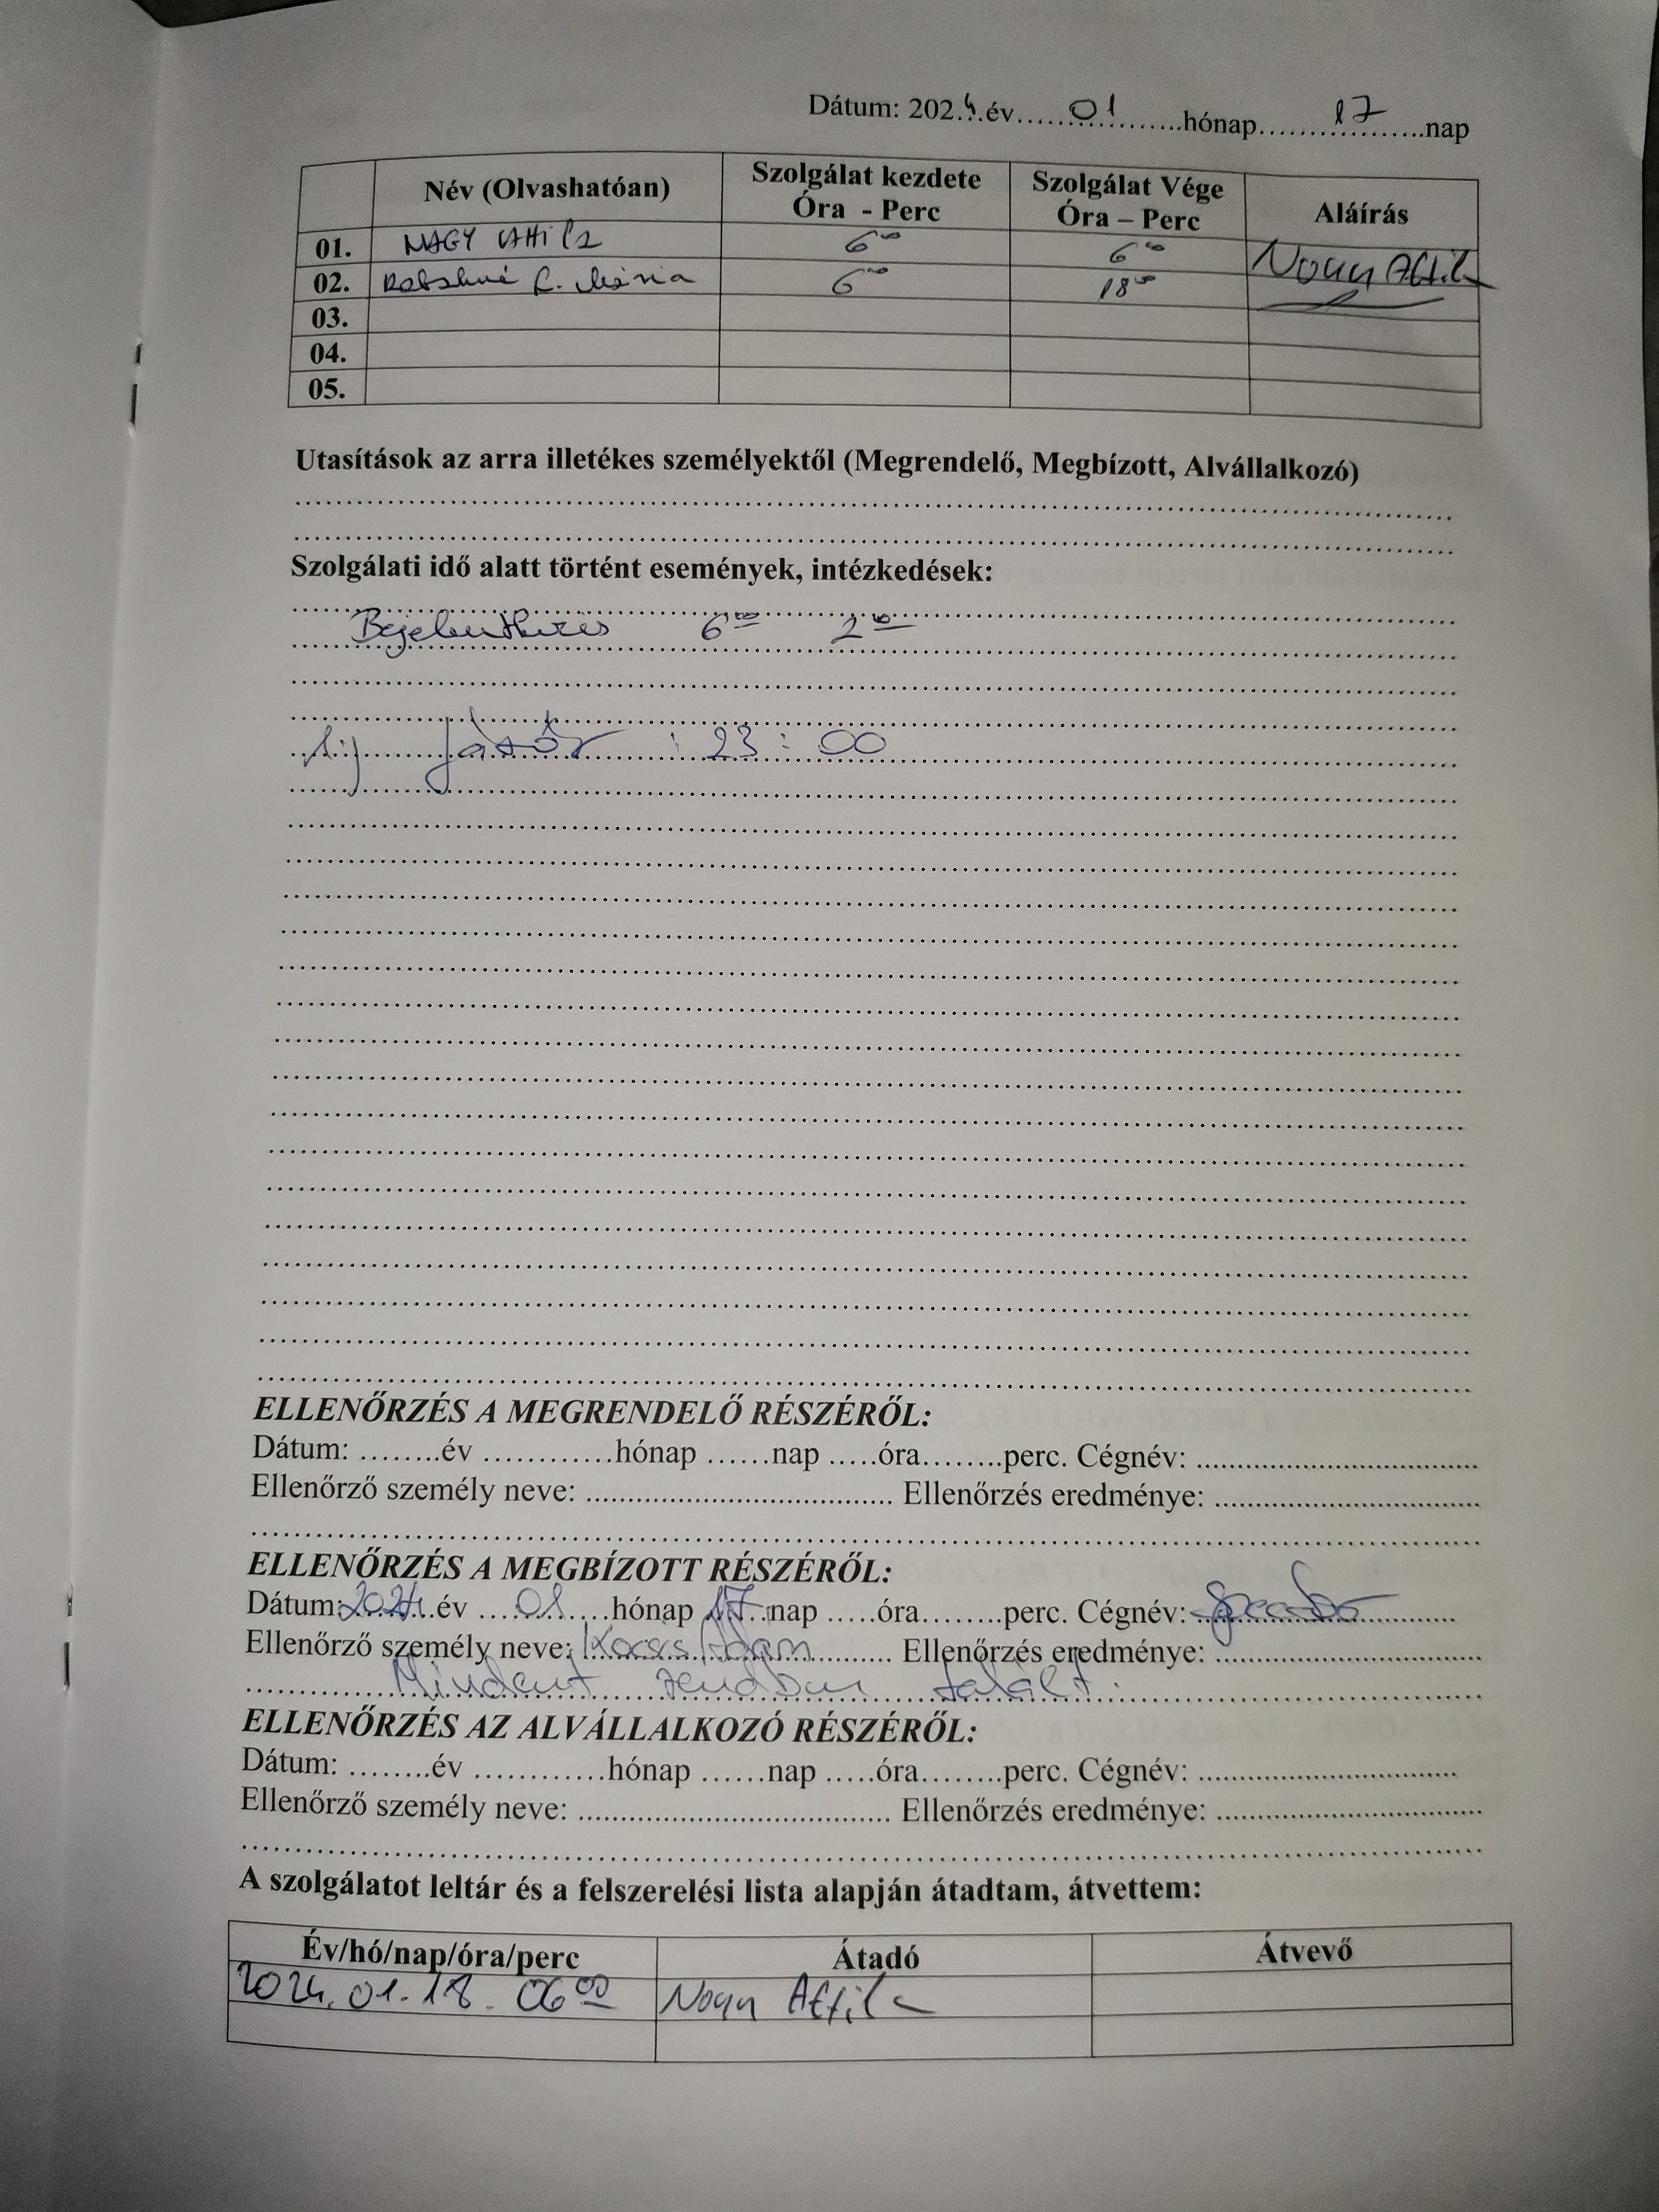 Dátum: 2024.év......01......hónap......17......nap
Név (Olvashatóan) Szolgálat kezdete Óra - Perc Szolgálat Vége Óra – Perc Aláírás
01. NAGY Attila 6⁰⁰ 6⁰⁰ Nagy Attila
02. Mária 6⁰⁰ 18⁰⁰
03.
04.
05.
Utasítások az arra illetékes személyektől (Megrendelő, Megbízott, Alvállalkozó)
Szolgálati idő alatt történt események, intézkedések:
Bejelentkezés 6⁰⁰
járőr : 23 : 00
ELLENŐRZÉS A MEGRENDELŐ RÉSZÉRŐL:
Dátum: ........év ............hónap ......nap .....óra........perc. Cégnév: ....................
Ellenőrző személy neve: .................... Ellenőrzés eredménye: ....................
ELLENŐRZÉS A MEGBÍZOTT RÉSZÉRŐL:
Dátum: 2024 év ....01....hónap 17 nap .....óra........perc. Cégnév:
Ellenőrző személy neve: Kocsis Ádám Ellenőrzés eredménye: ....................
Mindent rendben talált.
ELLENŐRZÉS AZ ALVÁLLALKOZÓ RÉSZÉRŐL:
Dátum: ........év ............hónap ......nap .....óra........perc. Cégnév: ....................
Ellenőrző személy neve: .................... Ellenőrzés eredménye: ....................
A szolgálatot leltár és a felszerelési lista alapján átadtam, átvettem:
Év/hó/nap/óra/perc Átadó Átvevő
2024. 01. 18. 06⁰⁰ Nagy Attila